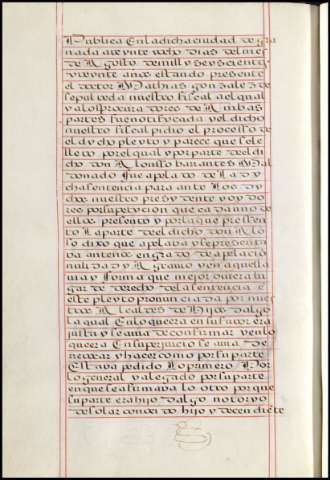 Publica En la dicha ciudad de gra
nada a veynte y ocho dias del mes
de Agosto de mill y seyscientos
y veynte años estando presente
el doctor Mathias gonzalez de
sepulveda nuestro fiscal a el qual
y a los procuradores de Ambas
partes fue notificada y el dicho
nuestro fiscal pidio el processo de
el dicho pleyto y parece que se le
llevo por el qual y por parte del di
cho don Alonso barantes Mal
donado fue apelado de La dy
cha sentencia para ante Los dy
chos nuestro presydente y oydo
res por su petycion que cada uno de
ellos presento y por la que pressen
to La parte de el dicho don Alo
so dixo que apelava y se presenta
va ante nos en grado de apelacio
nulidad y Agravio y en aquella
via y forma que mejor oviera lu
gar de derecho de la sentencia e
este pleyto pronunciada por nues
tros Alcaldes de Hijosdalgo
la qual En lo que era en su favor era
justa y se avia de confirmar y en lo
que era En su perjuicio se avia de
revocar y hacer como por su parte
Estava pedido Lo primero Por
lo general y alegado por su parte
en que se afirmava lo otro por que
su parte era hijodalgo notoryo
de solar conocido hijo y decendiete